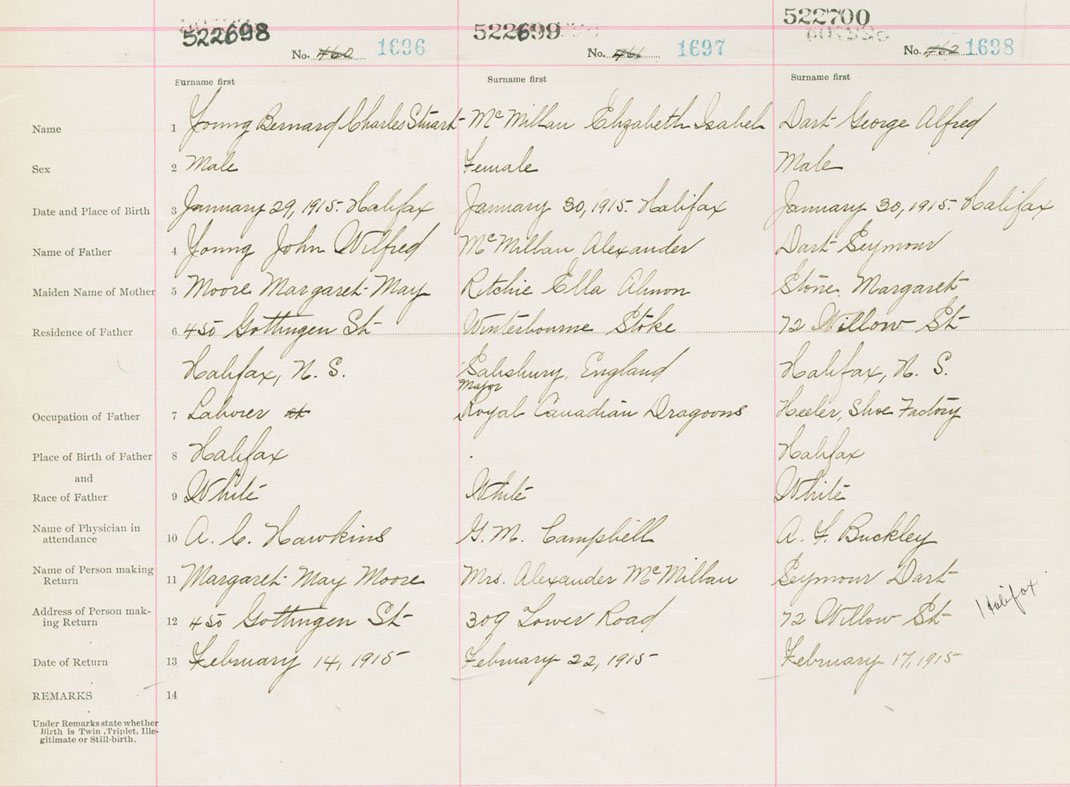 522698 522699 522700
No. 460 1696 No. 461 1697 No. 462 1698
Surname first Surname first Surname first
Name 1 Young Bernard Charles Stuart McMillan Elizabeth Isabel Dart George Alfred
Sex 2 Male Female Male
Date and Place of Birth 3 January 29, 1915 Halifax January 30, 1915 Halifax January 30, 1915 Halifax
Name of Father 4 Young John Wilfred McMillan Alexander Dart Seymour
Maiden Name of Mother 5 Moore Margaret May Ritchie Ella Almon Stone Margaret
Residence of Father 6 450 Gottingen St Winterbourne Stoke 72 Willow St
Halifax, N. S. Salisbury, England Halifax, N. S.
Major
Occupation of Father 7 Laborer Royal Canadian Dragoons Heeler, Shoe Factory
Place of Birth of Father 8 Halifax Halifax
and
Race of Father 9 White White White
Name of Physician in
attendance 10 A. C. Hawkins G. M. Campbell A. F. Buckley
Name of Person making
Return 11 Margaret May Moore Mrs. Alexander McMillan Seymour Dart
Address of Person mak-
ing Return 12 450 Gottingen St 309 Tower Road 72 Willow St Halifax
Date of Return 13 February 14, 1915 February 22, 1915 February 17, 1915
REMARKS 14
Under Remarks state whether
Birth is Twin, Triplet, Ille-
gitimate or Still-birth.